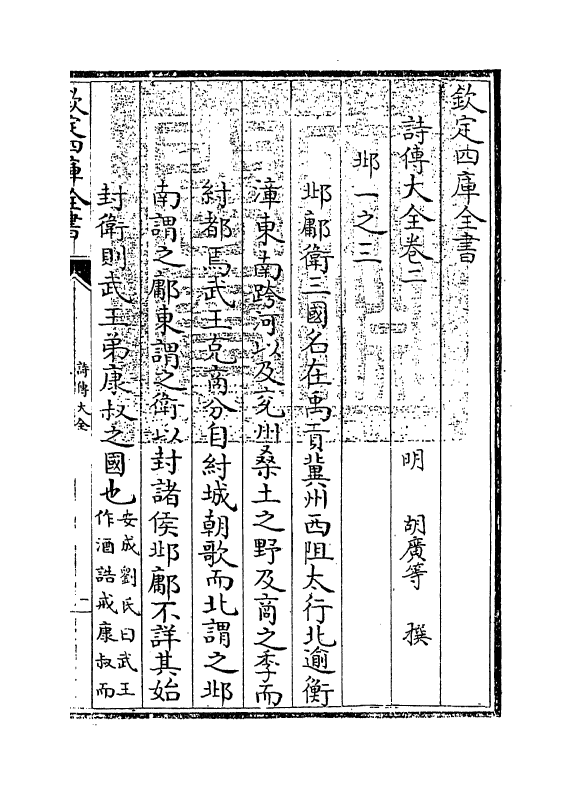 欽定四庫全書
詩傳大全卷二
明 胡廣等 撰
邶一之三
邶鄘衛三國名在禹貢冀州西阻太行北逾衡
漳東南跨河以及兗州桑土之野及商之季而
紂都焉武王克商分自紂城朝歌而北謂之邶
南謂之鄘東謂之衛以封諸侯邶鄘不詳其始
封衛則武王弟康叔之國也
安成劉氏曰武王
作酒誥戒康叔而
欽定四庫全書
詩傳大全